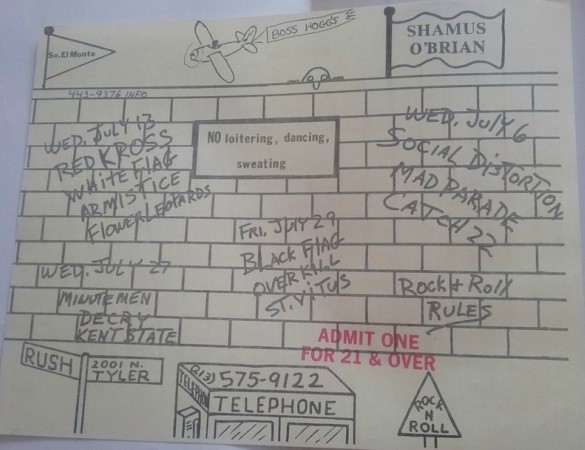 BOSS HOGG'S
So. El Monte
SHAMUS
O'BRIAN
443-9376 INFO
WED. JULY 13
RED KROSS
WHITE FLAG
ARMISTICE
FLOWER LEOPARDS
NO loitering, dancing,
sweating
WED. JULY 6
SOCIAL DISTORTION
MAD PARADE
CATCH 22
FRI. JULY 29
BLACK FLAG
OVERKILL
ST. VITUS
WED. JULY 27
MINUTEMEN
DECRY
KENT STATE
ROCK & ROLL
RULES
ADMIT ONE
FOR 21 & OVER
RUSH
2001 N.
TYLER
(213) 575-9122
TELEPHONE
TELEPHONE
ROCK
N
ROLL